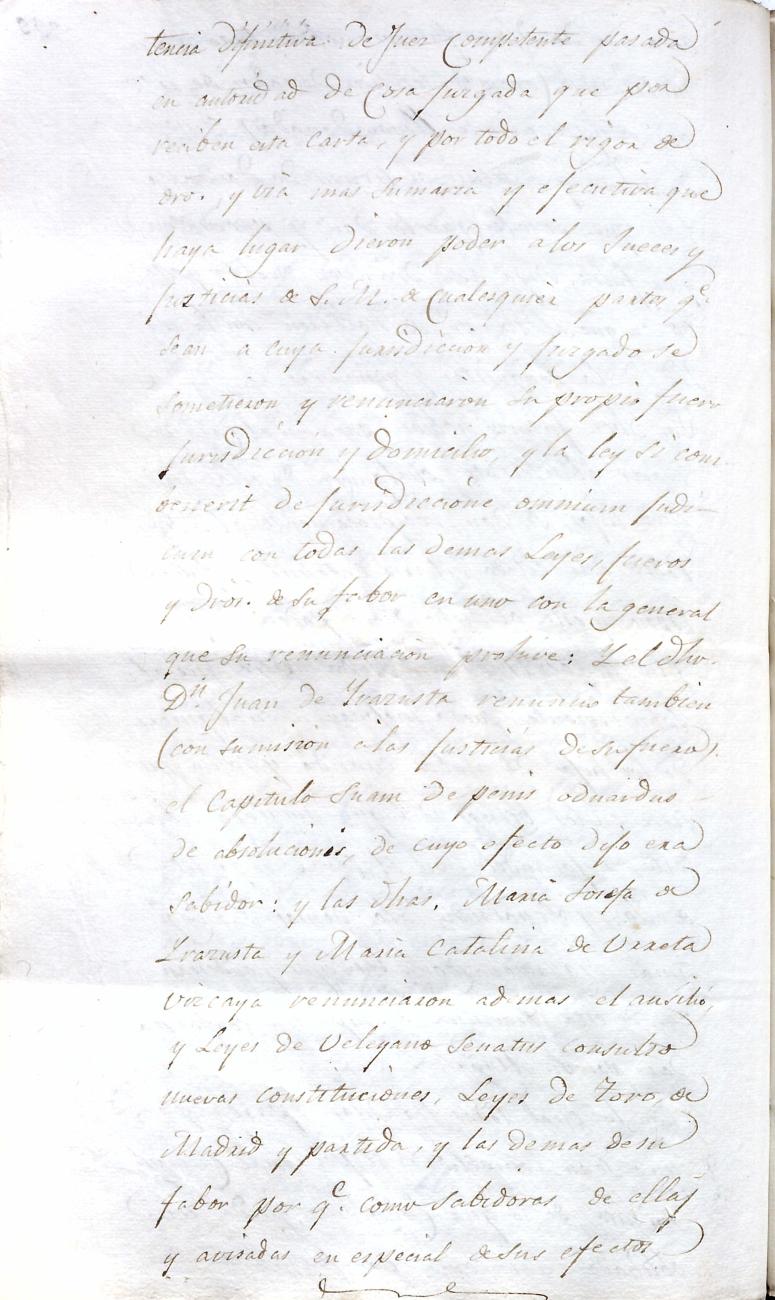 tencia difinitiva de Juez Competente pasada
en autoridad de Cosa Juzgada que por
reciben esta Carta, y por todo el rigor de
dro. y via mas Sumaria y efecutiva que
haya lugar dieron poder a los Jueces y
Justicias de S. M. de Cualesquier partes qe.
Sean a cuya Jurisdicion y Juzgado se
Sometieron y renunciaron su propio fuero
Jurisdiccion y domicilio, y la ley Si com
benerit de Jurisdiccione omnium Judi-
cum con todas las demas Leyes, fueros
y dros. de su fabor en uno con la general
que su renunciacion prohive: Y el dho.
Dn. Juan de Yrazusta renuncio tambien
(con sumision a las Justicias de su fuero)
el Capitulo Suam de penis oduardus
de absolucionis, de cuyo efecto dijo era
Sabidor: y las dhas. Maria Josefa de
Yrazusta y Maria Catalina de Urreta
vizcaya renunciaron ademas el ausilio,
y Leyes de Veleyano Senatus consulto
nuevas constituciones, Leyes de Toro, de
Madrid y partida, y las demas de su
fabor por qe. como Sabidoras de ellas
y avisadas en especial de sus efectos,